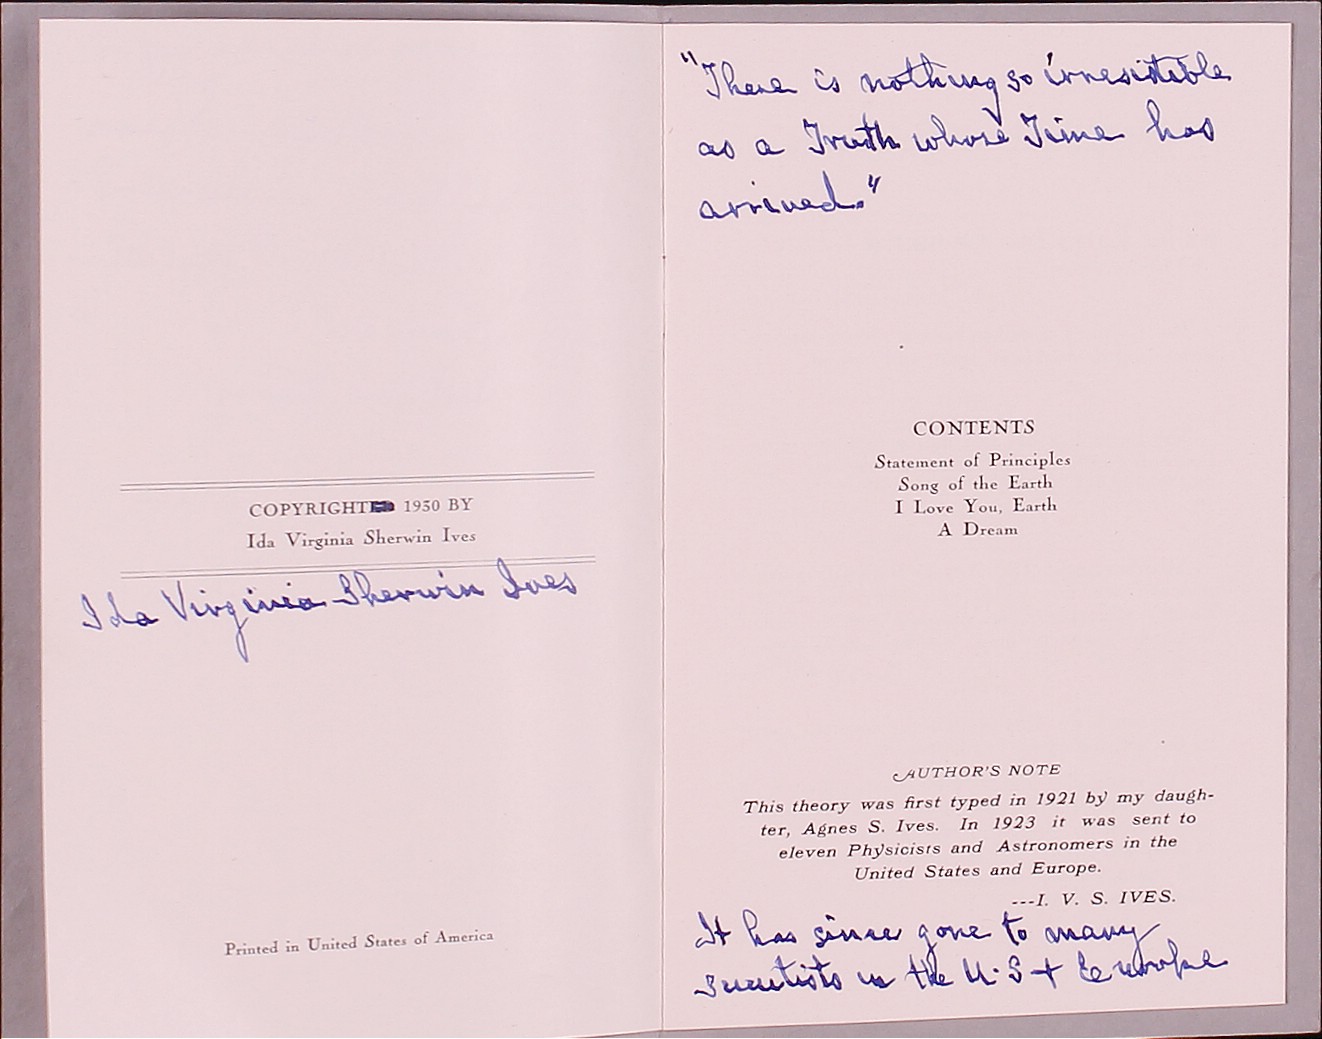 COPYRIGHT 1930 BY
Ida Virginia Sherwin Ives
Ida Virginia Sherwin Ives
Printed in United States of America
"There is nothing so irresistible
as a Truth whose Time has
arrived."
CONTENTS
Statement of Principles
Song of the Earth
I Love You, Earth
A Dream
AUTHOR'S NOTE
This theory was first typed in 1921 by my daugh-
ter, Agnes S. Ives. In 1923 it was sent to
eleven Physicists and Astronomers in the
United States and Europe.
---I. V. S. IVES.
It has since gone to many
scientists in the U.S + Europe